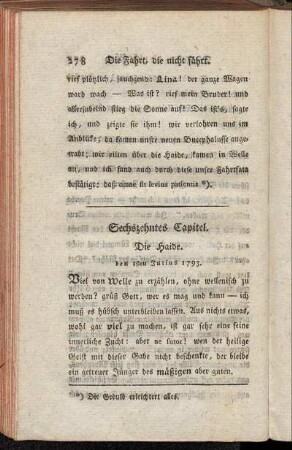 278 Die Fahrt, die nicht fährt.
rief plötzlich, jauchzend: Lina! der ganze Wagen
ward wach — Was ist? rief mein Bruder! und
allerjubelnd stieg die Sonne auf! Das ist's, sagte
ich, und zeigte sie ihm! wir verlohren uns im
Anblicke; da kamen unsre neuen Bucephalusse ange-
wackt; wir eilten über die Haide, kamen in Welle
an, und ich fand auch durch diese unsre Fahrtfata
bestätigt: daß omne fit levius patientia *).
Sechszehntes Capitel.
Die Haide.
den 18ten Julius 1793.
Viel von Welle zu erzählen, ohne wellenisch zu
werden? grüß Gott, wer es mag und kann — ich
muß es hübsch unterbleiben lassen. Aus nichts etwas,
wohl gar viel zu machen, ist gar sehr eine feine
innerliche Zucht: aber ne sutor! wen der heilige
Geist mit dieser Gabe nicht beschenkte, der bleibe
ein getreuer Jünger des mäßigen aber guten.
*) Die Geduld erleichtert alles.